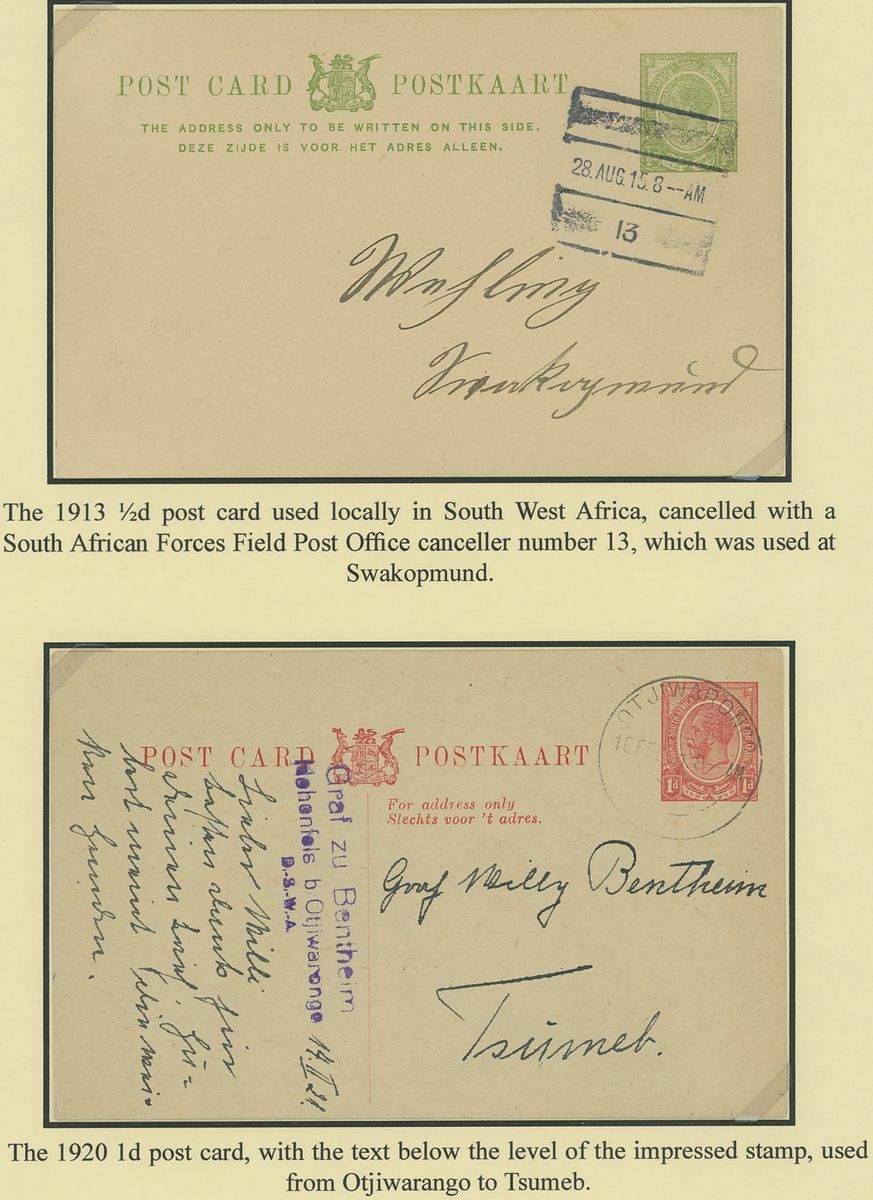 POST CARD POSTKAART
THE ADDRESS ONLY TO BE WRITTEN ON THIS SIDE.
DEZE ZIJDE IS VOOR HET ADRES ALLEEN.
28.AUG.15.8--AM
13
Wehling
Swakopmund
The 1913 ½d post card used locally in South West Africa, cancelled with a
South African Forces Field Post Office canceller number 13, which was used at
Swakopmund.
POST CARD POSTKAART
OTJIWARONGO
16 FEB
AM
1d 1d
For address only
Slechts voor 't adres.
Graf Willy Bentheim
Tsumeb.
Graf zu Bentheim
Hohenfels b Otjiwarongo
D.-S.-W.-A.
14.II 21.
Lieber Willi
besten Dank für
Deinen Brief.
The 1920 1d post card, with the text below the level of the impressed stamp, used
from Otjiwarango to Tsumeb.